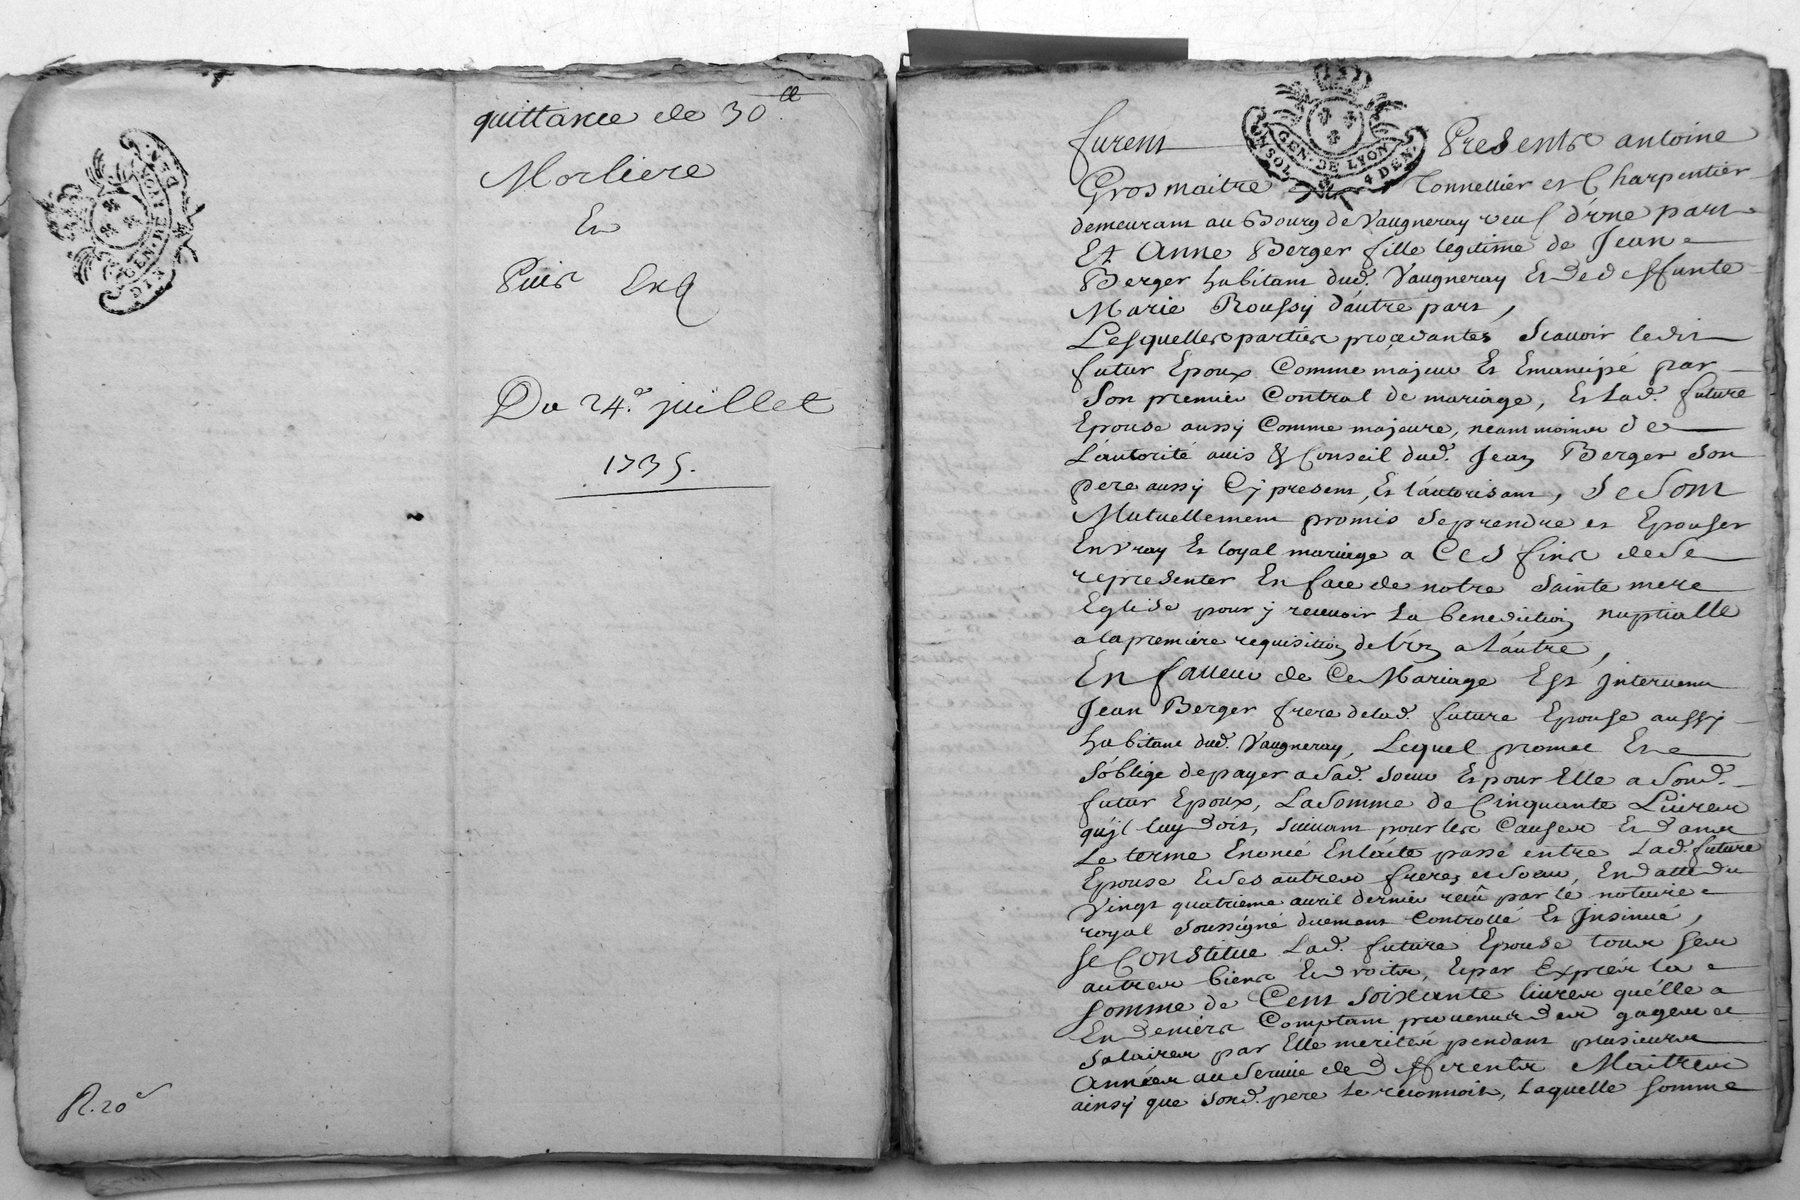 quittance de 30ll.
Morliere
Et
Puis
Du 24e. juillet
1735.
R. 20s
GEN. DE LYON
GEN. DE LYON
UN SOL 4 DEN.
furent Presents antoine
Grosmaitre Tonnellier et Charpentier
demeurant au Bourg de Vaugneray veuf d'une part
Et Anne Berger fille legitime de Jean
Berger habitant dud. Vaugneray Et de deffunte
Marie Roussy d'autre part,
Lesquelles parties procedantes Scauoir ledit
futur Epoux Comme majeur Et Emancipé par
Son premier Contrat de mariage, Et Lad. future
Epouse aussy Comme majeure, neantmoins de
L'autorité auis & Conseil dud. Jean Berger Son
pere aussy Cy present, Et l'autorisant, Se Sont
Mutuellement promis Se prendre et Epouser
En vray Et loyal mariage a Ces fins de Se
representer En face de notre Sainte mere
Eglise pour y receuoir La benediction nuptialle
a la premiere requisition de l'un a L'autre,
En faueur de Ce Mariage Est Interuenu
Jean Berger frere de lad. future Epouse aussy
habitant dud. Vaugneray, Lequel promet Et
S'oblige de payer a Sad. Soeur Et pour Elle a Sond.
futur Epoux, La Somme de Cinquante Liures
qu'il luy doit, Suiuant pour les Causes Et dans
Le terme Enoncé En l'acte passé entre Lad. future
Epouse Et Ses autres freres et Soeur, En datte du
Vingt quatrieme auril dernier recû par le notaire
royal Soussigné duement Controllé Et Insinué,
Se Constitue Lad. future Epouse tous Ses
autres biens Et droits, Et par Exprés la
Somme de Cent Soixante liures qu'elle a
En deniers Comptant prouenus des gages et
Salaires par Elle merités pendant plusieurs
Années au Seruice de differents Maitres
ainsy que Sond. pere Le reconnoit, Laquelle Somme